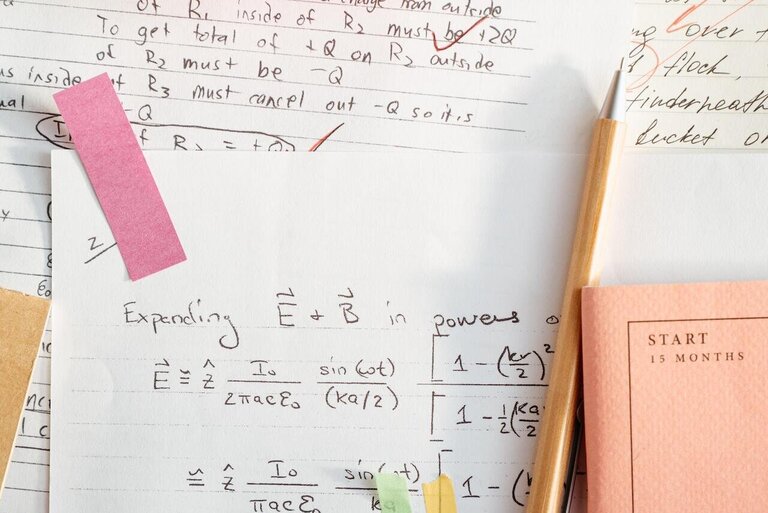 of R₁ inside of R₂ must be +2Q
To get total of +Q on R₂ outside
of R₂ must be -Q
inside of R₃ must cancel out -Q so it,s
-Q
f R₂ = +Q
over
flock,
underneath
bucket
2
Expanding E⃗ + B⃗ in powers
E⃗ ≅ ẑ I₀/(2πacε₀) sin(ωt)/(ka/2) [1 - (kr/2)²]/[1 - ½(ka/2)
≅ ẑ I₀/(πacε₀) sin(ωt)/ka [1 - (
START
15 MONTHS